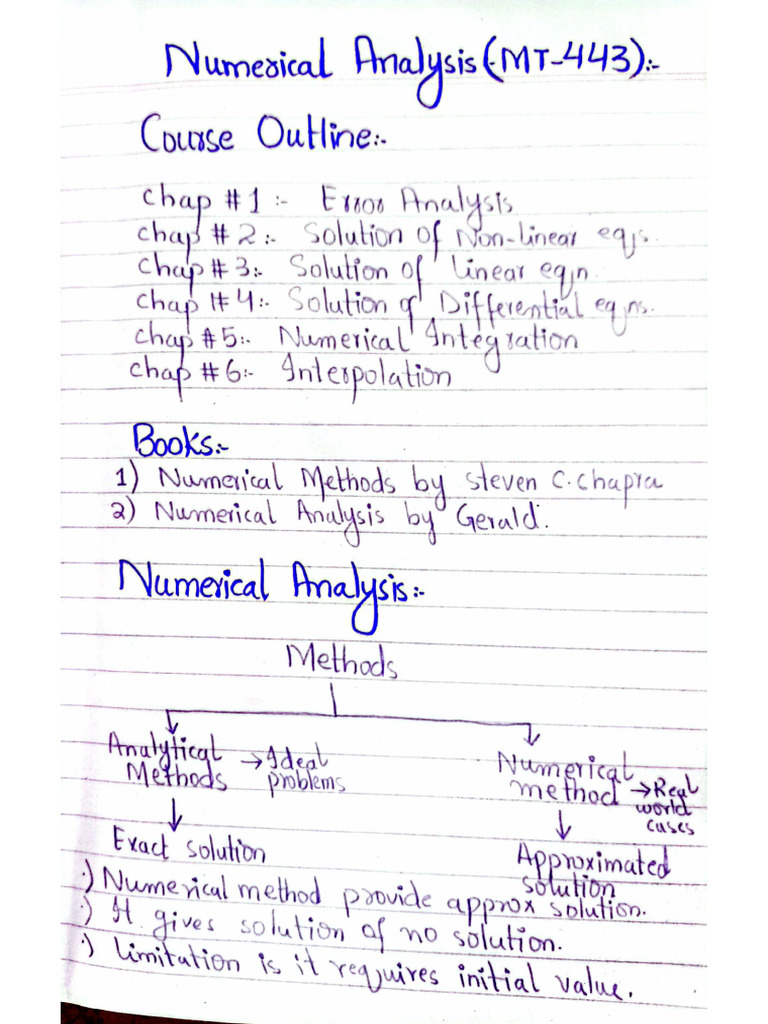 Numerical Analysis (MT-443):-
Course Outline:-
Chap #1:- Error Analysis
Chap #2:- Solution of Non-linear eqs.
Chap #3:- Solution of linear eqn
Chap #4:- Solution of Differential eqns.
Chap #5:- Numerical Integration
Chap #6:- Interpolation
Books:-
1) Numerical Methods by Steven C. Chapra
2) Numerical Analysis by Gerald.
Numerical Analysis:-
Methods
Analytical Methods → Ideal problems
Exact solution
Numerical method → Real world cases
Approximated solution
·) Numerical method provide approx solution.
·) It gives solution of no solution.
·) Limitation is it requires initial value.